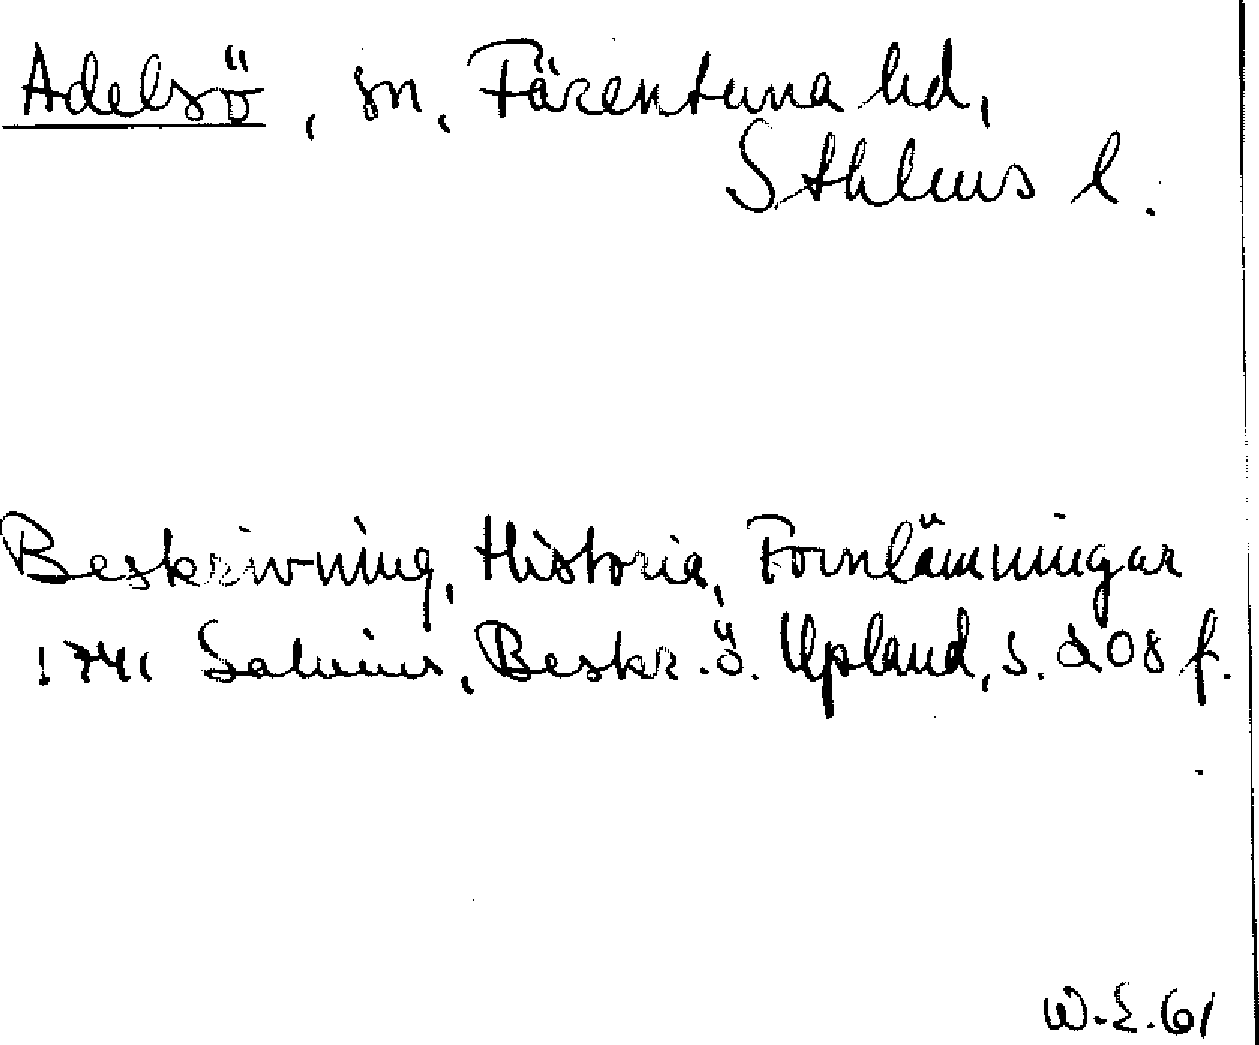 Adelsö, sn, Färentuna hd,
Sthlms l.
Beskrivning, Historia, Fornlämningar
1741 Salvius, Beskr. ö. Upland, s. 208 f.
W.E.61